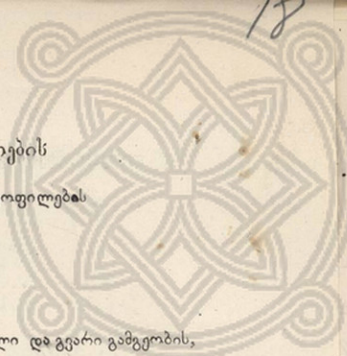 18
იების
ოფილების
ლი და გვარი გამგეობის,